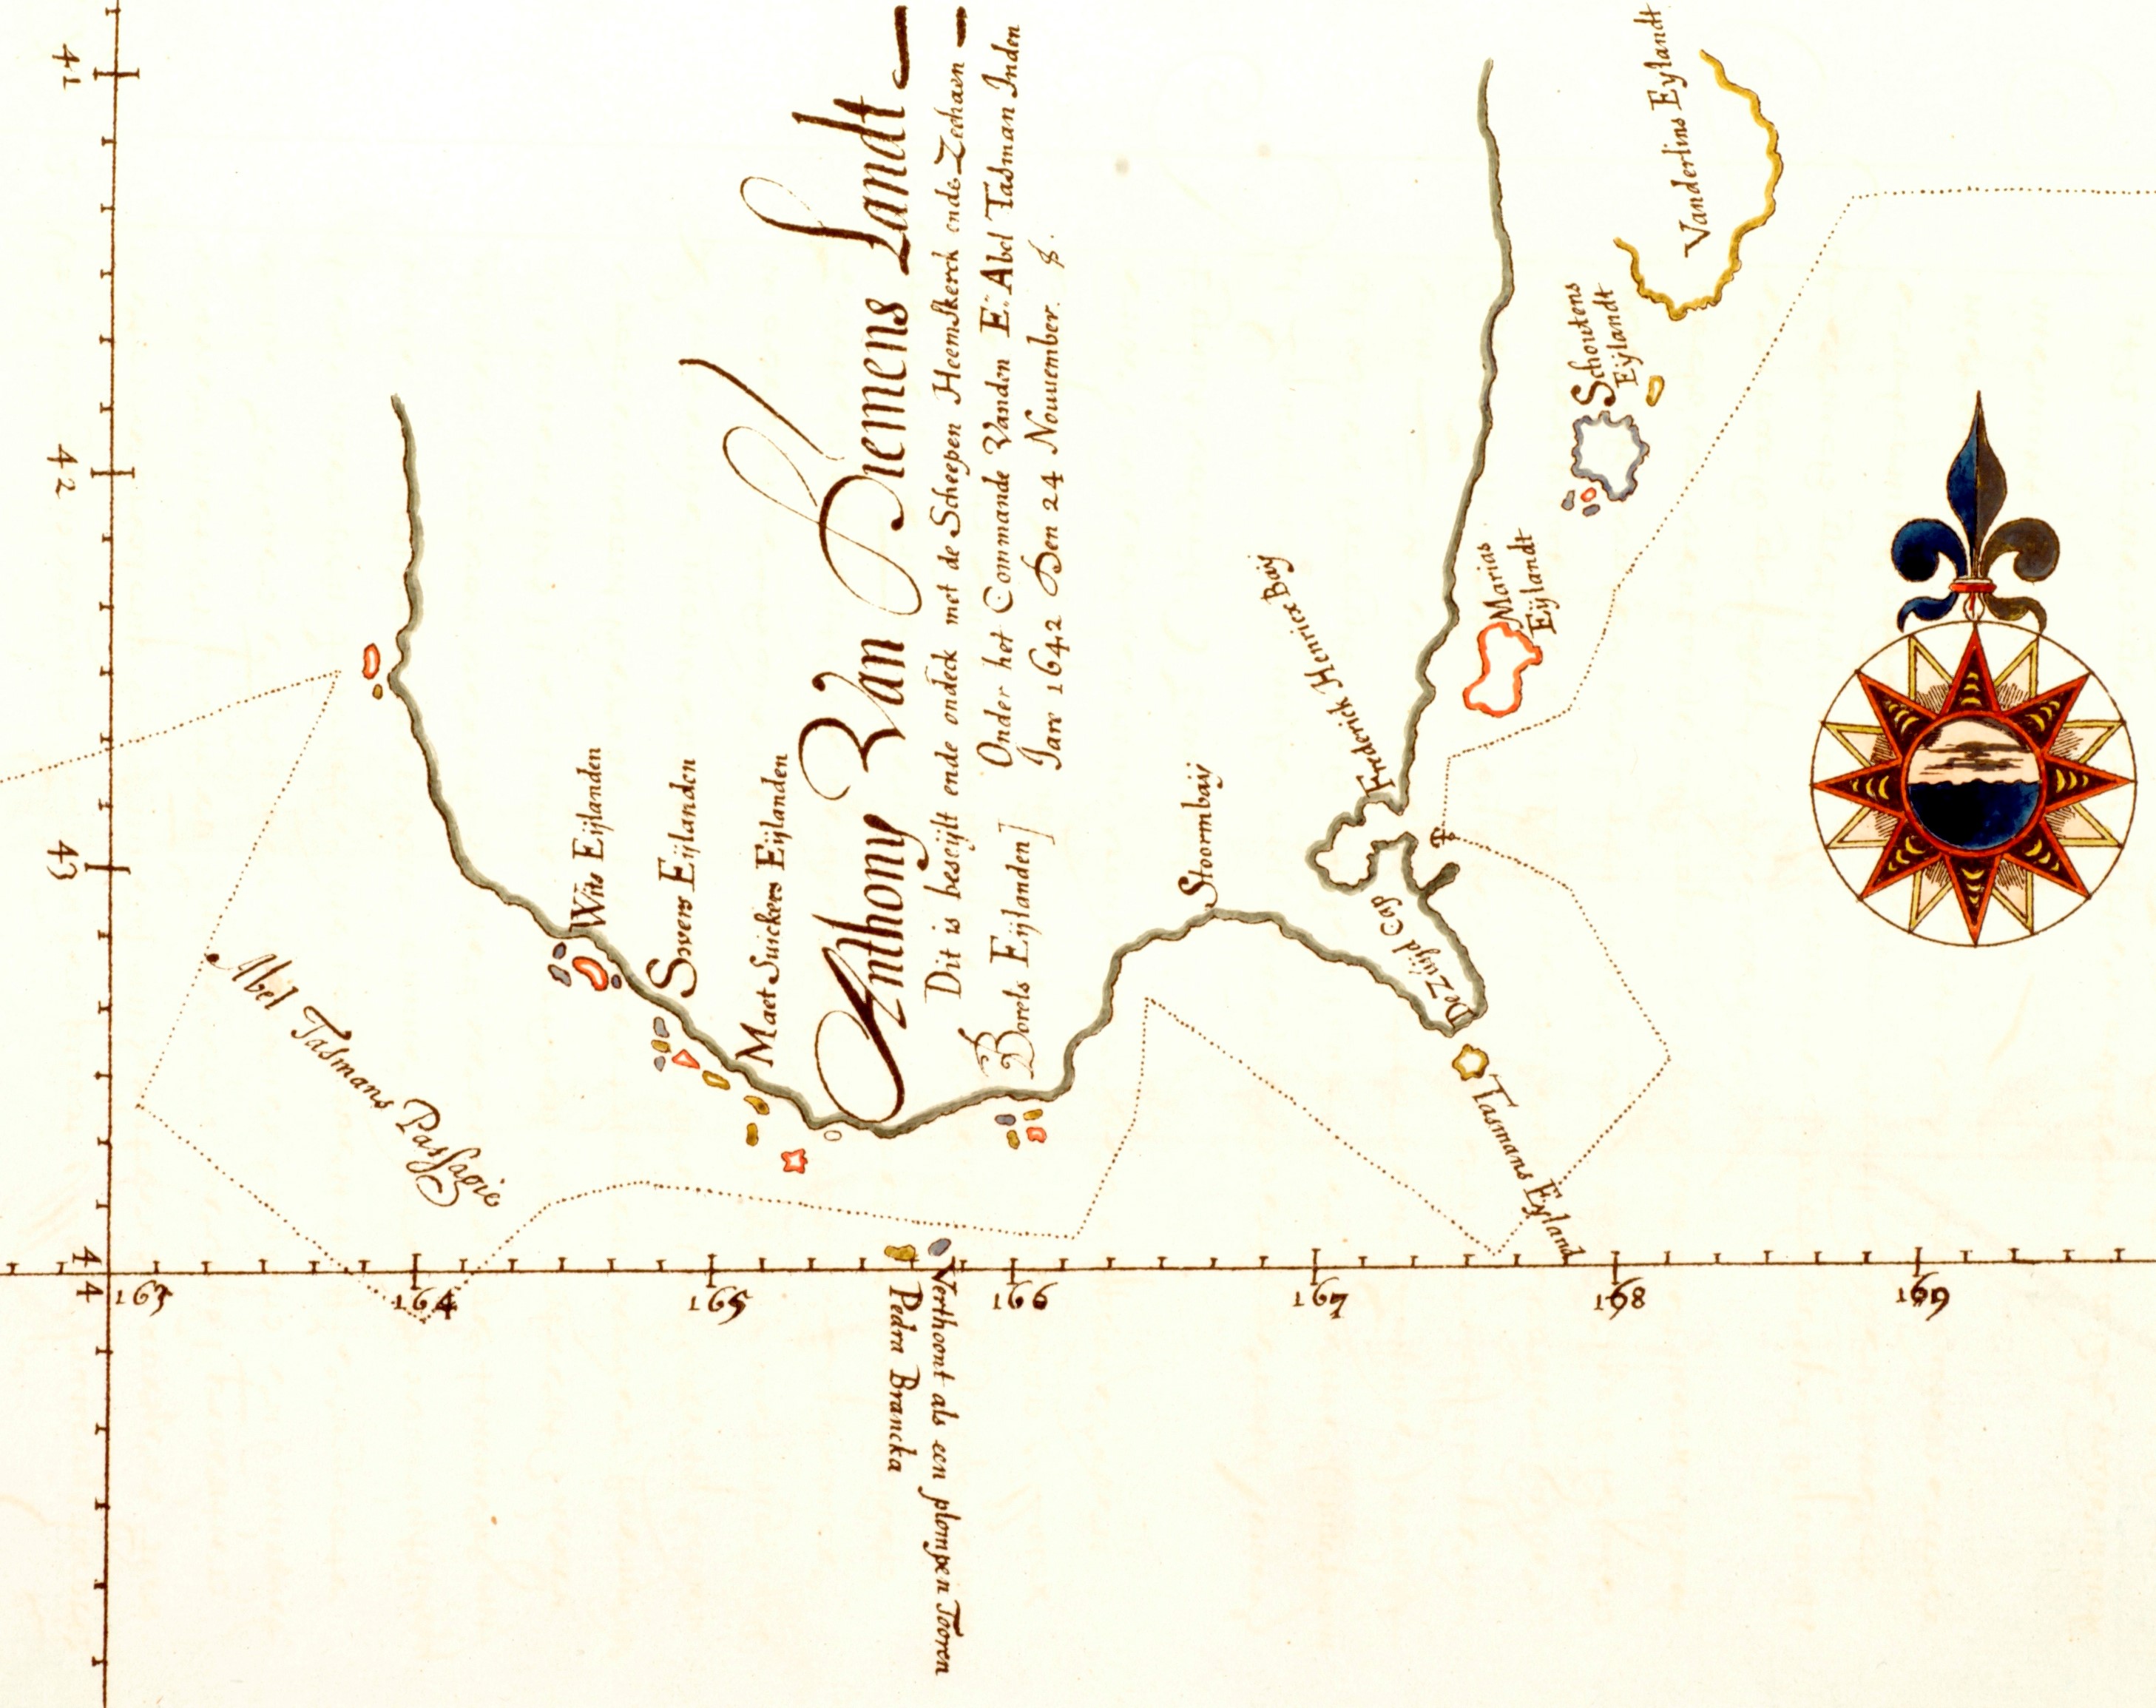 Anthony Van Diemens Landt
Dit is beseijlt ende ondeck met de Scheepen Heemskerck ende Zeehaen
Onder het Commande Vanden E. Abel Tasman Inden
Jare 1642 Den 24 Nouember.
Wits Eijlanden
Sweers Eijlanden
Maet Suickers Eijlanden
Borels Eijlanden
Stoormbaij
Frederick Henricx Baij
De Zuijd Cap
Tasmans Eyland
Marias
Eijlandt
Schoutens
Eijlandt
Vanderlins Eylandt
Abel Tasmans Passagie
Pedra Brancka
Verthoont als een plompen Tooren
41
42
43
44
163
164
165
166
167
168
169